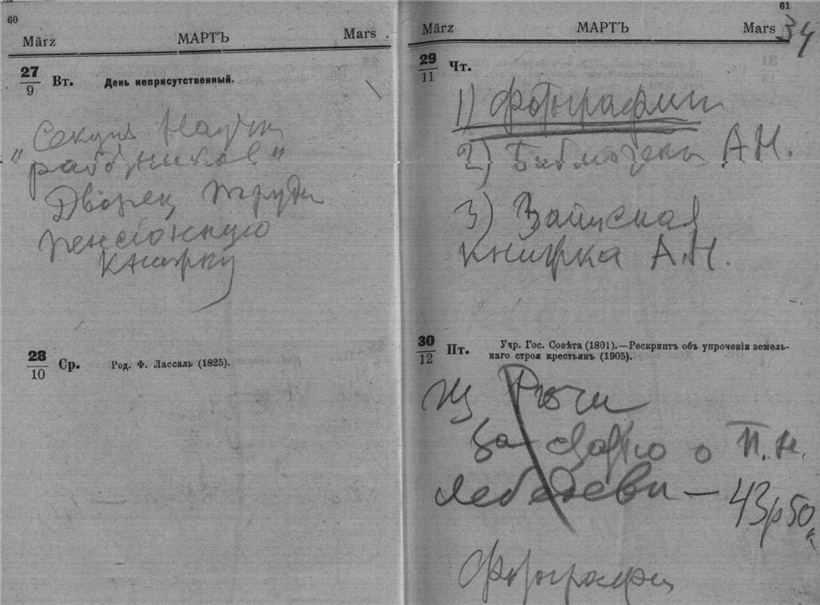 60
März МАРТЪ Mars
27/9 Вт. День неприсутственный.
Секция Научн
"работников"
Дворец труда
пенсионную
книжку
28/10 Ср. Род. Ф. Лассаль (1825).
61
März МАРТЪ Mars
34
29/11 Чт.
1) Фотографии
2) Библиотека А.Н.
3) Записная
книжка А.Н.
30/12 Пт. Учр. Гос. Совѣта (1801).—Рескриптъ объ упроченіи земель-
наго строя крестьянъ (1905).
Из
за о П.Н.
Лебедеви — 43р50
Фотографи